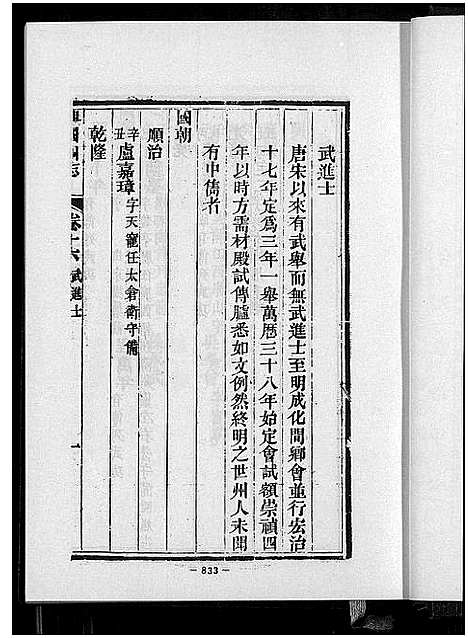 武進士
唐宋以來有武舉而無武進士至明成化間鄉會並行宏治
十七年定爲三年一舉萬厯三十八年始定會試額崇禎四
年以時方需材殿試傳臚悉如文例然終明之世州人未聞
有中儁者
國朝
順治
辛丑 盧嘉璋 字天寵任太倉衛守備
乾隆
州志 卷十六 武進士 一
— 833 —